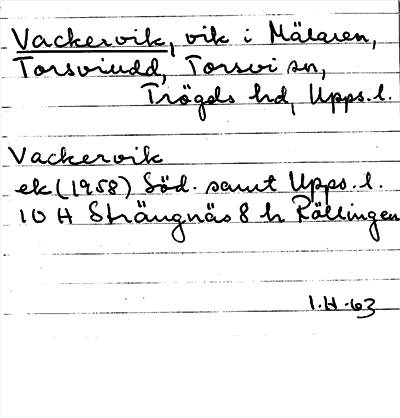 Vackervik, vik i Mälaren,
Torsviudd, Torsvi sn,
Trögds hd, Upps. l.
Vackervik
ek (1958) Söd. samt Upps. l.
10 H Strängnäs 8 h Rällingen
I.H-63